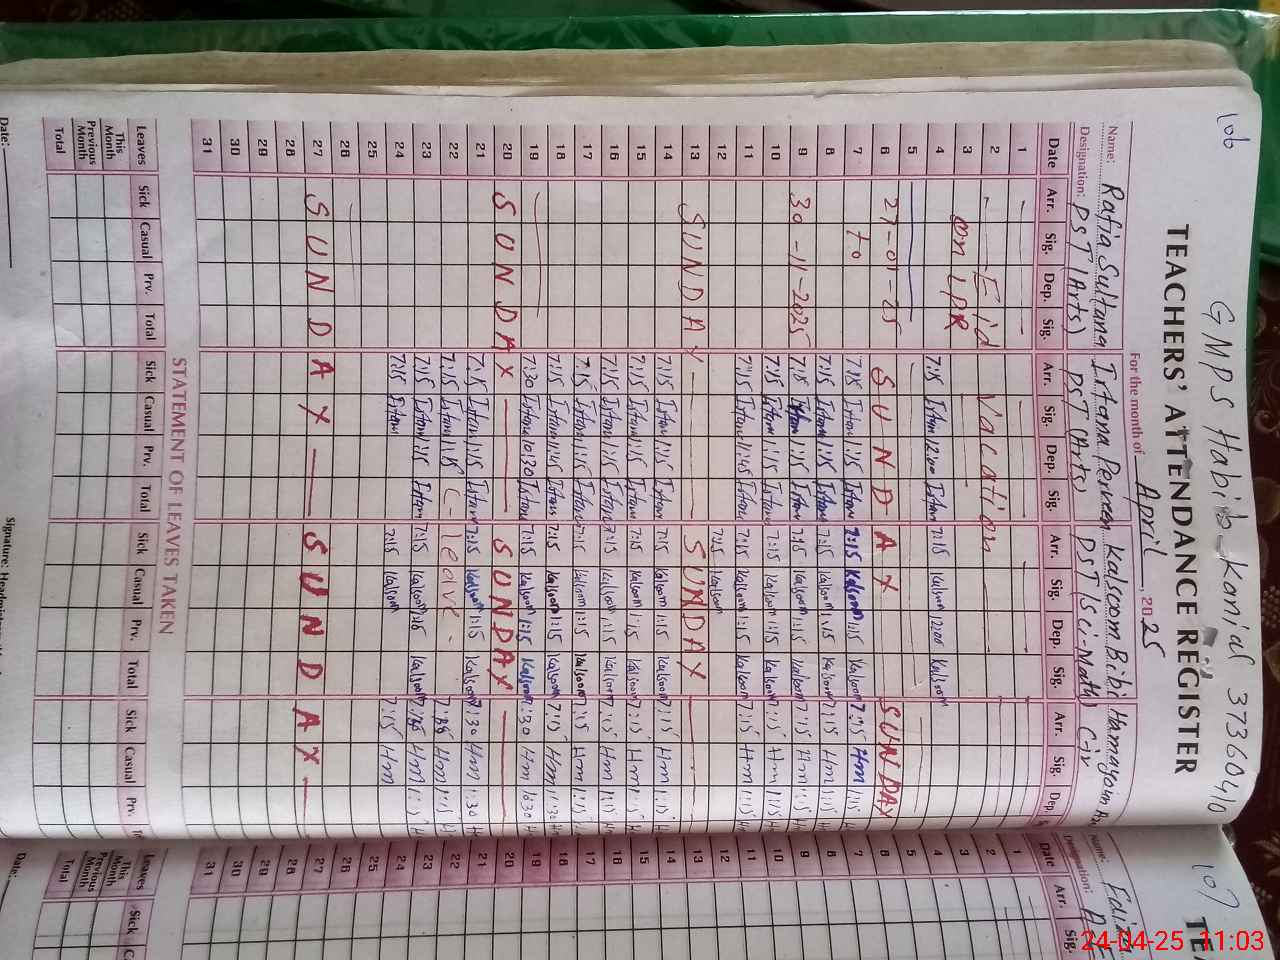 106
GMPS Habib Kanial 37360410
TEACHERS' ATTENDANCE REGISTER
For the month of April, 2025
Name: Rafia Sultana Irfana Perveen Kalsoom Bibi Hamayoun
Designation: PST (Arts) PST (Arts) PST (Sci-Math)
Date Arr. Sig. Dep. Sig. Arr. Sig. Dep. Sig. Arr. Sig. Dep. Sig. Arr. Sig. Dep.
1
2 Eid Vacation
3 on LPR
4 7:15 12:00 7:15 Kalsoom 12:00 Kalsoom
5
6 27-01-25 SUNDAY SUNDAY
7 to 7:15 1:15 7:15 Kalsoom 1:15 Kalsoom 7:15 Hm 1:15
8 7:15 1:15 7:15 Kalsoom 1:15 Kalsoom 7:15 Hm 1:15
9 30-11-2025 7:15 1:15 7:15 Kalsoom 1:15 Kalsoom 7:15 Hm 1:15
10 7:15 1:15 7:15 Kalsoom 1:15 Kalsoom 7:15 Hm 1:15
11 7:15 11:45 7:15 Kalsoom 1:15 Kalsoom 7:15 Hm 1:15
12 7:15 Kalsoom
13 SUNDAY SUNDAY
14 7:15 1:15 7:15 Kalsoom 1:15 Kalsoom 7:15 Hm 1:15
15 7:15 1:15 7:15 Kalsoom 1:15 Kalsoom 7:15 Hm 1:15
16 7:15 1:15 7:15 Kalsoom 1:15 Kalsoom 7:15 Hm 1:15
17 7:15 1:15 7:15 Kalsoom 1:15 Kalsoom 7:15 Hm 1:15
18 7:15 11:45 7:15 Kalsoom 1:15 Kalsoom 7:15 Hm 11:30
19 7:30 10:30 7:15 Kalsoom 1:15 Kalsoom 7:30 Hm 10:30
20 SUNDAY SUNDAY
21 7:15 1:15 7:15 Kalsoom 1:15 Kalsoom 7:30 Hm 1:30
22 7:15 1:15 - leave - Hm 1:15
23 7:15 1:15 7:15 Kalsoom Kalsoom Hm 1:15
24 7:15 7:15 Kalsoom 7:15 Hm
25
26
27 SUNDAY SUNDAY
28
29
30
31
STATEMENT OF LEAVES TAKEN
Leaves Sick Casual Prv. Total Sick Casual Prv. Total Sick Casual Prv. Total Sick Casual Prv.
This Month
Previous Month
Total
Date: Signature: Headmis
107
TE
Name:
Designation:
Date Arr. Sig.
1
2
3
4
5
6
7
8
9
10
11
12
13
14
15
16
17
18
19
20
21
22
23
24
25
26
27
28
29
30
31
Leaves Sick
This Month
Previous Month
Total
Date:
24-04-25 11:03